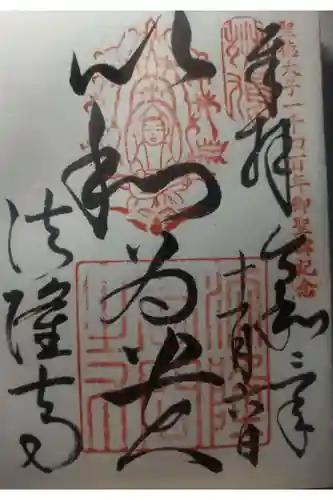 聖徳太子一千四百年御聖諱記念
奉拝
令和三年
十一月六日
以和為貴
法隆寺